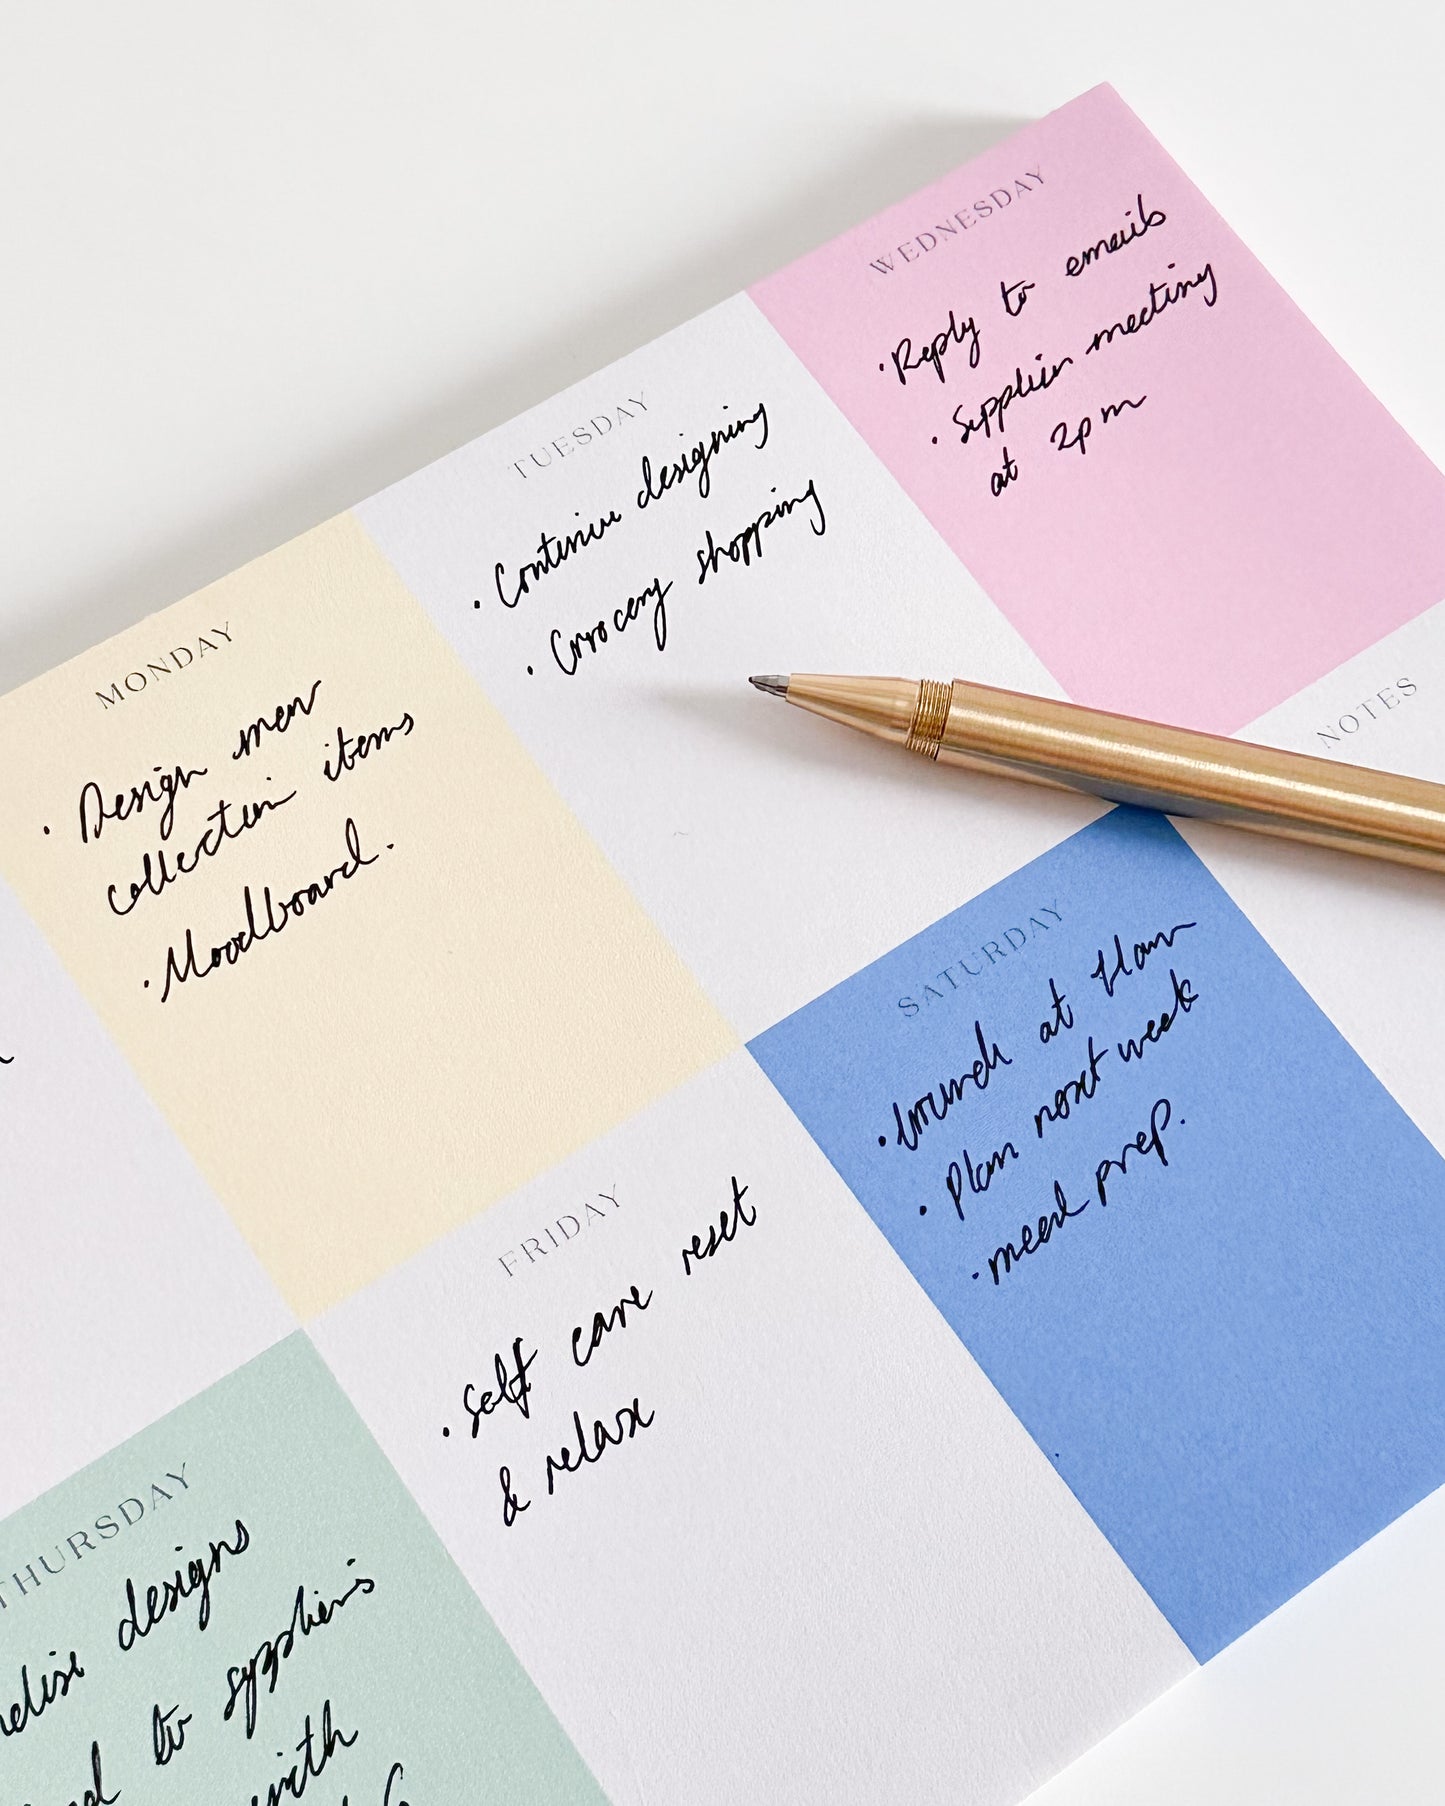 MONDAY
• Design new
collection items
• Moodboard.
TUESDAY
• Continue designing
• Grocery shopping
WEDNESDAY
• Reply to emails
• Supplier meeting
at 2pm
THURSDAY
designs
to suppliers
with
FRIDAY
• Self care reset
& relax
SATURDAY
• brunch at 11am
• Plan next week
• meal prep.
NOTES